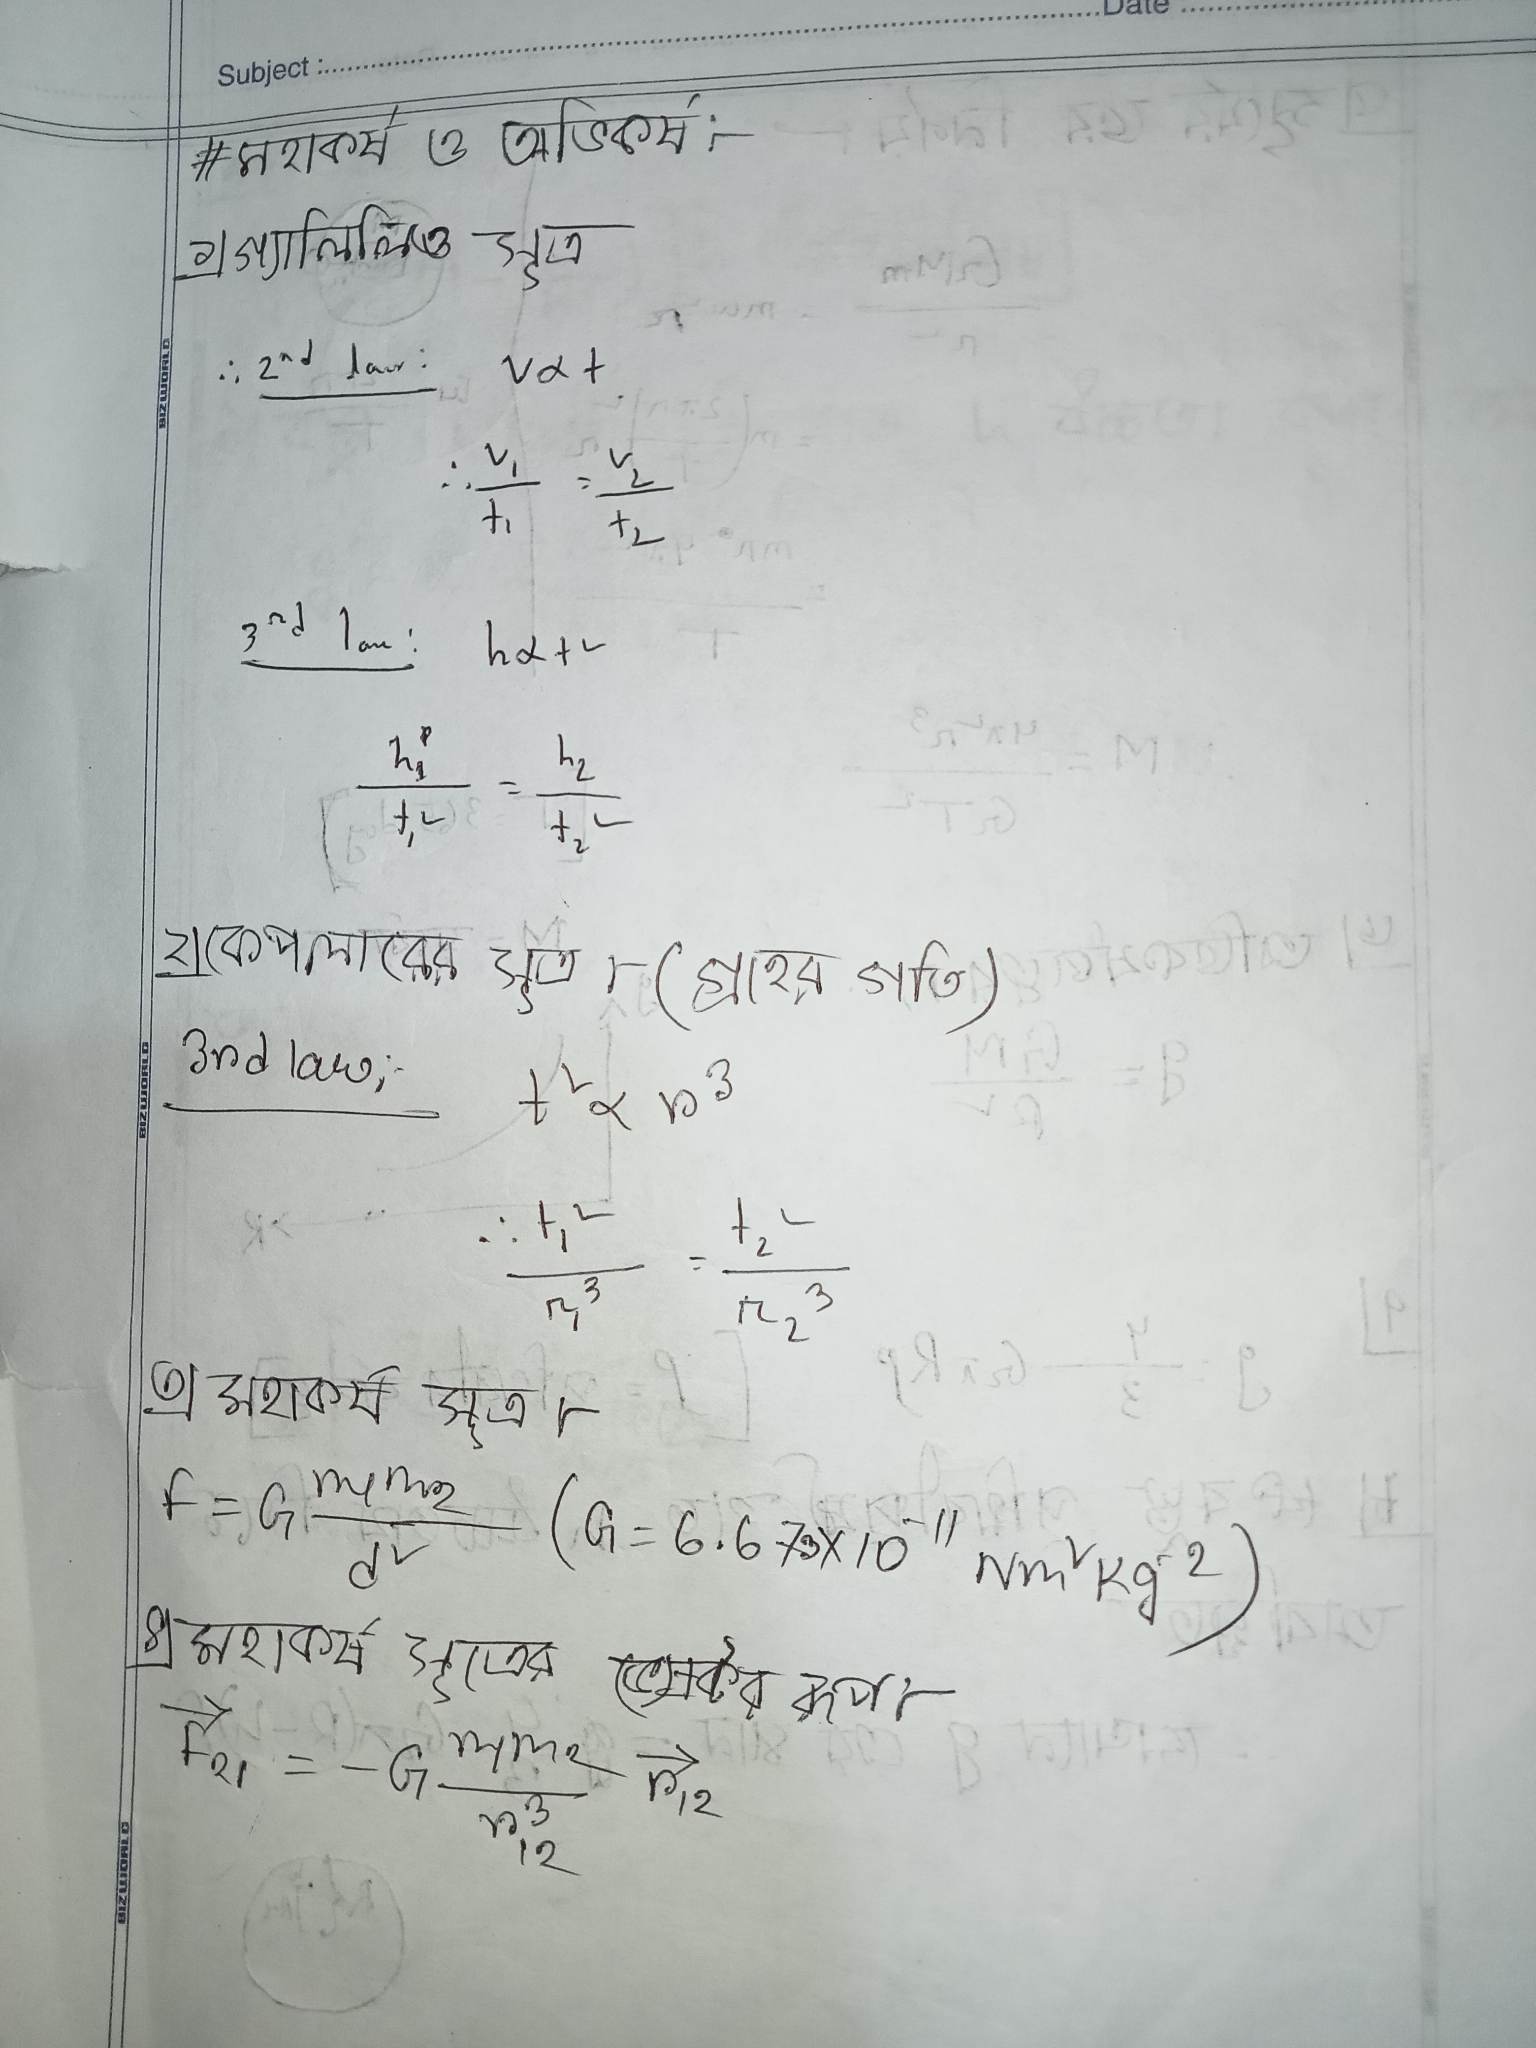 Date ..........
Subject :..........
# মহাকর্ষ ও অভিকর্ষ :-
১| গ্যালিলিও সূত্র
∴ 2nd law: v α t
∴ v₁/t₁ = v₂/t₂
3nd law: h α t²
h₁/t₁² = h₂/t₂²
২| কেপলারের সূত্র :- (গ্রহের গতি)
3nd law:- t² α r³
∴ t₁²/r₁³ = t₂²/r₂³
৩| মহাকর্ষ সূত্র :-
F = G m₁m₂/d² (G = 6.673×10⁻¹¹ Nm²Kg⁻²)
৪| মহাকর্ষ সূত্রের ভেক্টর রূপ :-
F⃗₂₁ = -G m₁m₂/r₁₂³ r⃗₁₂
BIZWORLD
BIZWORLD
BIZWORLD